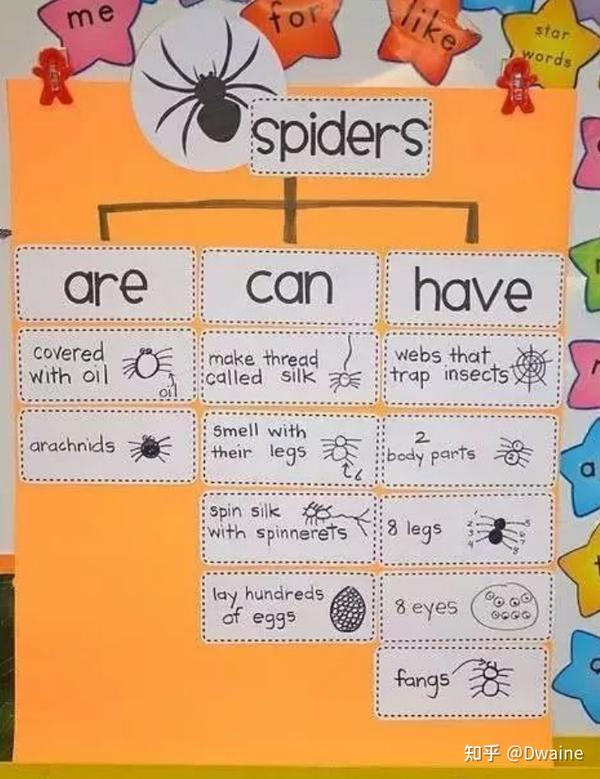 me
for
like
star
words
spiders
are
can
have
covered
with oil
oil
arachnids
make thread
called silk
smell with
their legs
spin silk
with spinnerets
lay hundreds
of eggs
webs that
trap insects
2
body parts
1
2
8 legs
1
2
3
4
5
6
7
8
8 eyes
fangs
a
知乎 @Dwaine